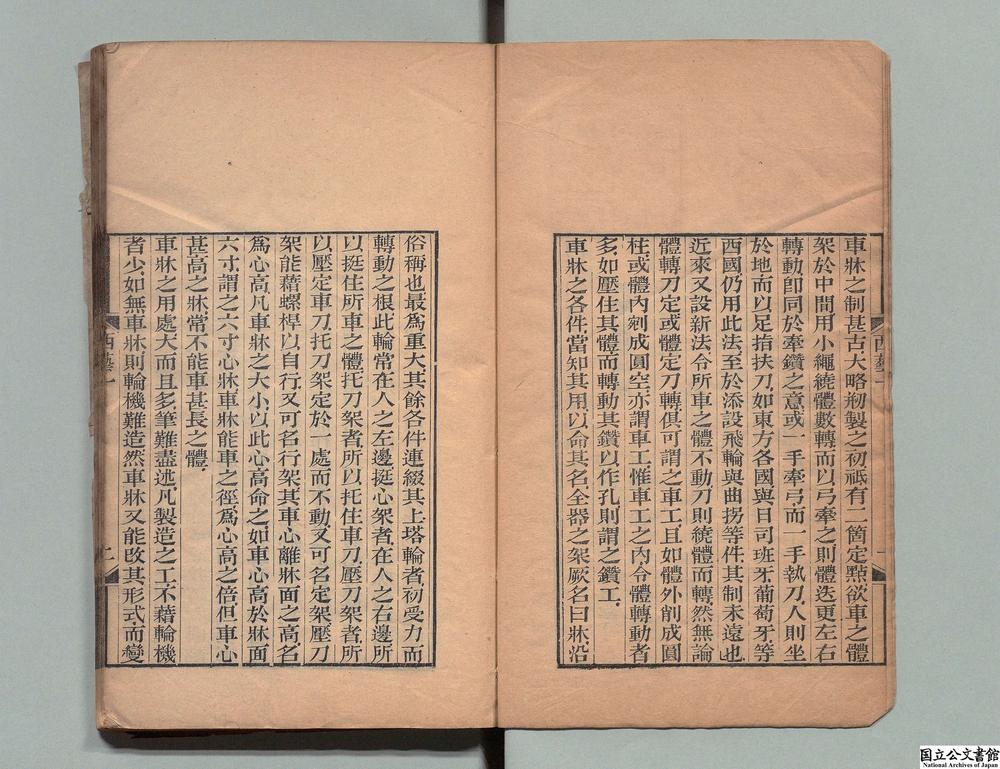 車牀之制甚古大略剏製之初祇有二箇定點欲車之體
架於中間用小繩繞體數轉而以弓牽之則體迭更左右
轉動卽同於牽鑽之意或一手牽弓而一手執刀人則坐
於地而以足指扶刀如東方各國與日司班牙葡萄牙等
西國仍用此法至於添設飛輪與曲拐等件其制未遠也
近來又設新法令所車之體不動刀則繞體而轉然無論
體轉刀定或體定刀轉俱可謂之車工且如體外削成圓
柱或體內剜成圓空亦謂車工惟車工之內令體轉動者
多如壓住其體而轉動其鑽以作孔則謂之鑽工
車牀之各件當知其用以命其名全器之架厥名曰牀沿
俗稱也最爲重大其餘各件連綴其上塔輪者初受力而
轉動之根此輪常在人之左邊挺心架者在人之右邊所
以挺住所車之體托刀架者所以托住車刀壓刀架者所
以壓定車刀托刀架定於一處而不動又可名定架壓刀
架能藉螺桿以自行又可名行架其車心離牀面之高名
爲心高凡車牀之大小以此心高命之如車心高於牀面
六寸謂之六寸心牀車牀能車之徑爲心高之倍但車心
甚高之牀常不能車甚長之體
車牀之用處大而且多筆難盡述凡製造之工不藉輪機
者少如無車牀則輪機難造然車牀又能改其形式而變
西藝一
一
西藝一
二
国立公文書館
National Archives of Japan